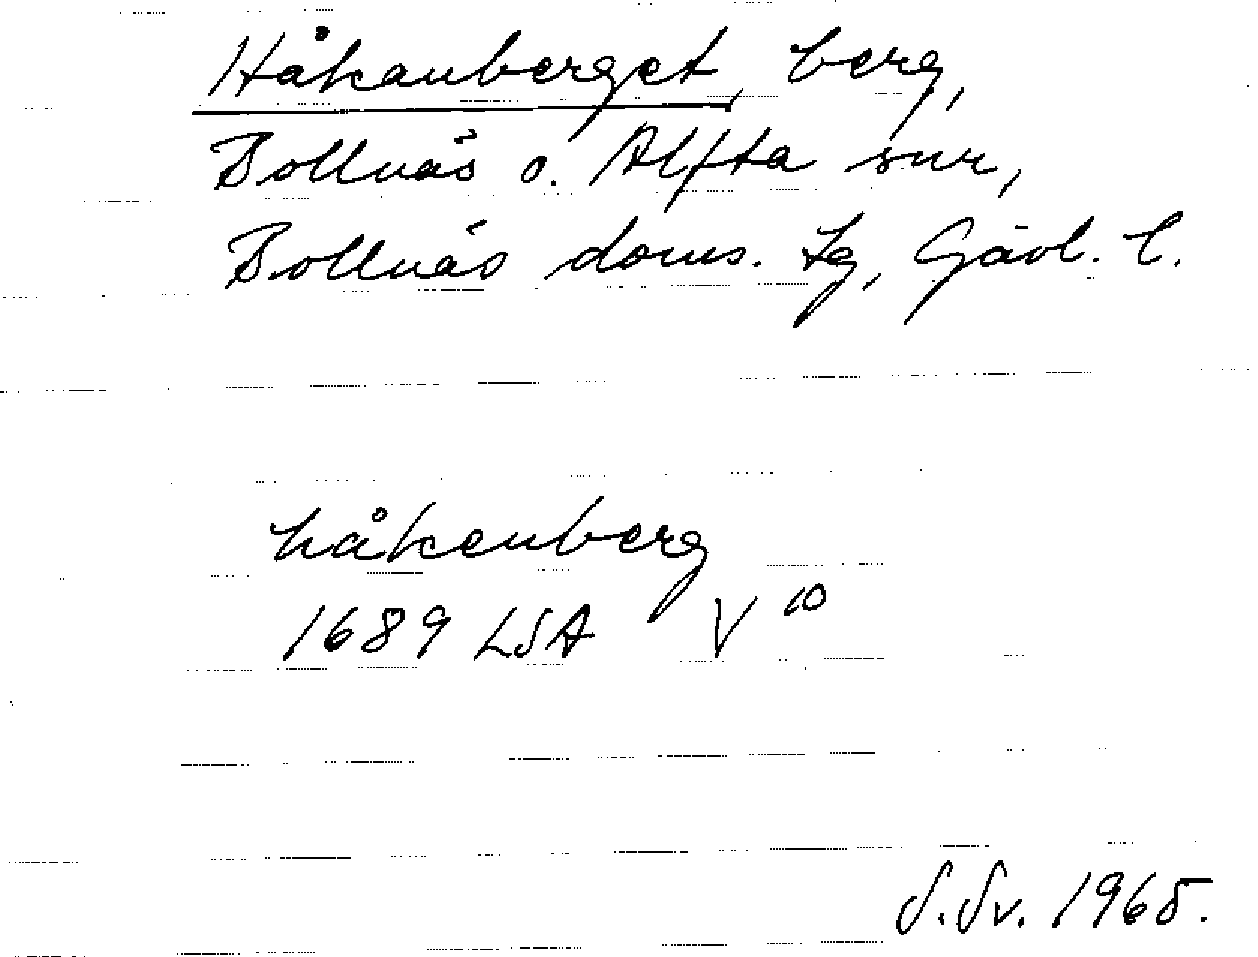 Håkanberget, berg,
Bollnäs o. Alfta snr,
Bollnäs doms. lg, Gävl. l.
håkenberg
1689 LSA V 10
S.Sv. 1965.